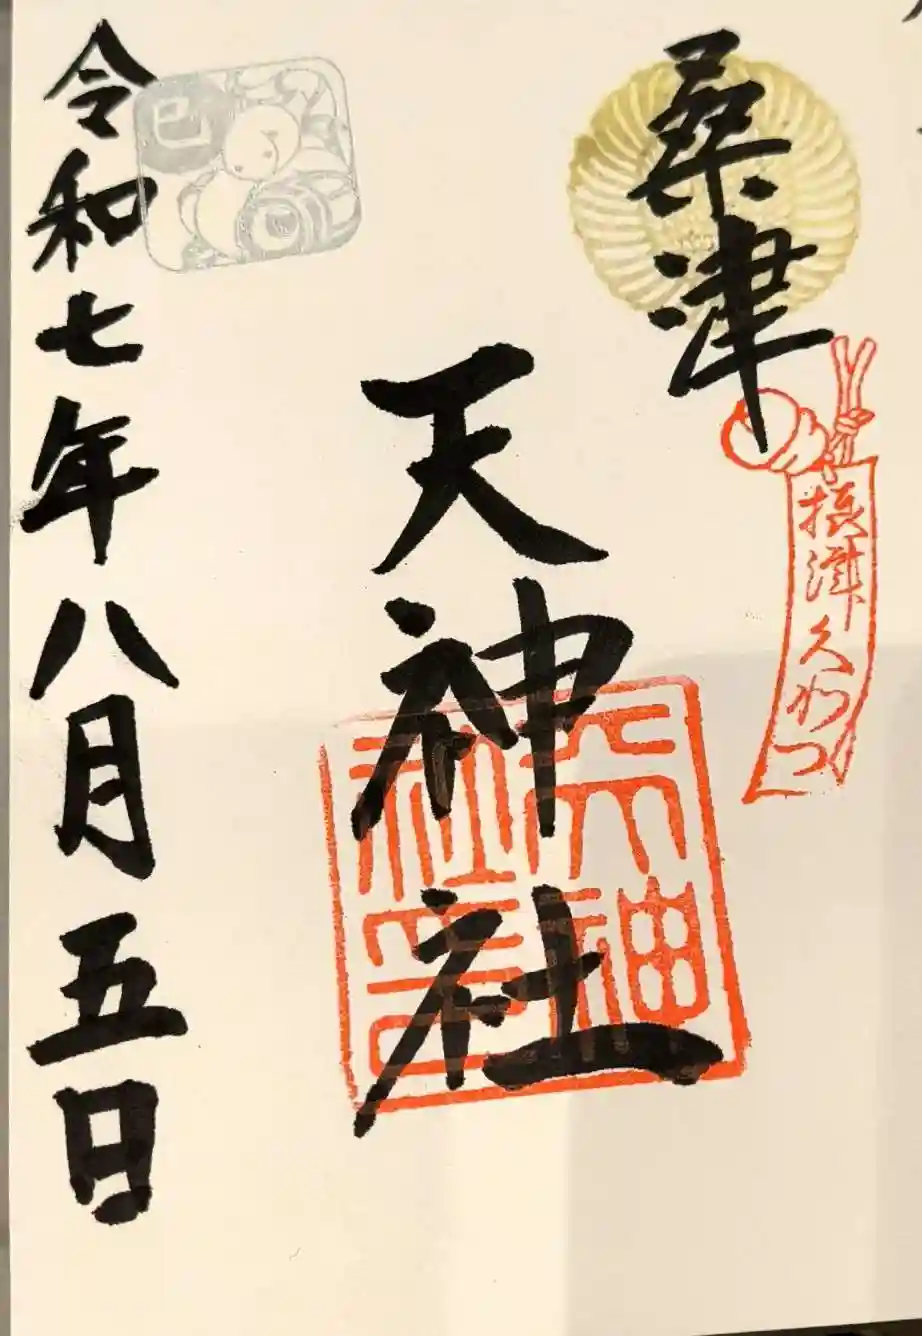 桑津
摂津久わつ
天神社
天神社印
令和七年八月五日
巳